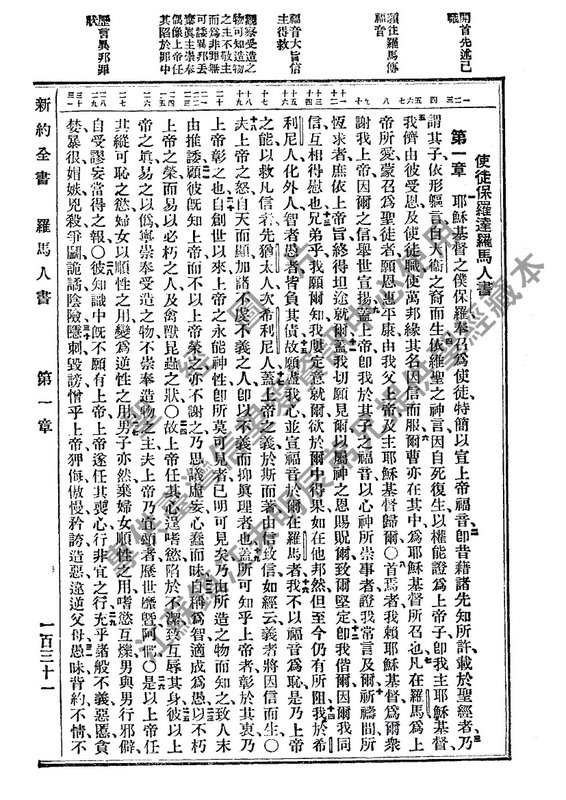 開首先述己
職
願往羅馬傳
福音
福音大旨信
主得救
觀察受造之
物可知造物
之主不敬主
而爲非罪無
可諉異邦丟
棄眞主崇奉
偶像上帝任
其陷於罪中
歷言異邦罪
狀
使徒保羅達羅馬人書
第一章 耶穌基督之僕保羅奉召爲使徒特簡以宣上帝福音卽昔藉諸先知所許載於聖經者乃
謂其子依形軀言自大衞之裔而生依維聖之神言因自死復生以權能證爲上帝子卽我主耶穌基督
我儕由彼受恩及使徒職使萬邦緣其名因信而服爾曹亦在其中爲耶穌基督所召也凡在羅馬爲上
帝所愛蒙召爲聖徒者願恩惠平康由我父上帝及主耶穌基督歸爾〇首焉者我賴耶穌基督爲爾衆
謝我上帝因爾之信舉世宣揚蓋上帝卽我於其子之福音以心神所崇事者證我常言及爾祈禱間所
恆求者庶依上帝旨終得坦途就爾蓋我切願見爾以屬神之恩賜貺爾致爾堅定卽我偕爾因爾我同
信互相得慰也兄弟乎我願爾知我屢定意就爾欲於爾中得果如在他邦然但至今仍有所阻我於希
利尼人化外人智者愚者皆負其債故願盡我心並宣福音於爾在羅馬者我不以福音爲恥是乃上帝
之能以救凡信者先猶太人次希利尼人蓋上帝之義於斯而著由信致信如經云義者將因信而生〇
夫上帝之怒自天而顯加諸不虔不義之人卽以不義而抑眞理者也蓋所可知乎上帝者彰於其衷乃
上帝彰之也自創世以來上帝之永能神性所不可見者已明可見乃由所造之物而知之致人末
由推諉顧彼旣知上帝而不以上帝榮之亦不謝之乃思議虛妄心蠢而昧自稱爲智適成爲愚以不朽
上帝之榮而易以必朽之人及禽獸昆蟲之狀〇故上帝任其心逞嗜慾陷於不潔致互辱其身彼以上
帝之眞易之以僞寧崇奉受造之物不崇奉造物之主夫上帝乃宜頌者歷世靡曁阿們〇是以上帝任
其縱可恥之慾婦女以順性之用變爲逆性之用男子亦然棄婦女順性之用嗜慾互爍男與男行邪僻
自受謬妄當得之報〇彼知識中旣不願有上帝上帝遂任其喪心行非宜之行充乎諸般不義惡慝貪
婪暴很媢嫉兇殺爭鬬詭譎陰險隱刺毀謗憎乎上帝狎侮傲慢矜誇造惡違逆父母愚昧背約不情不
新約全書 羅馬人書 第一章 一百三十一